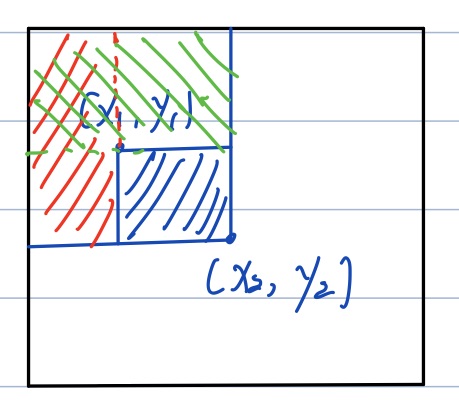 (x1, y1)
(x2, y2)